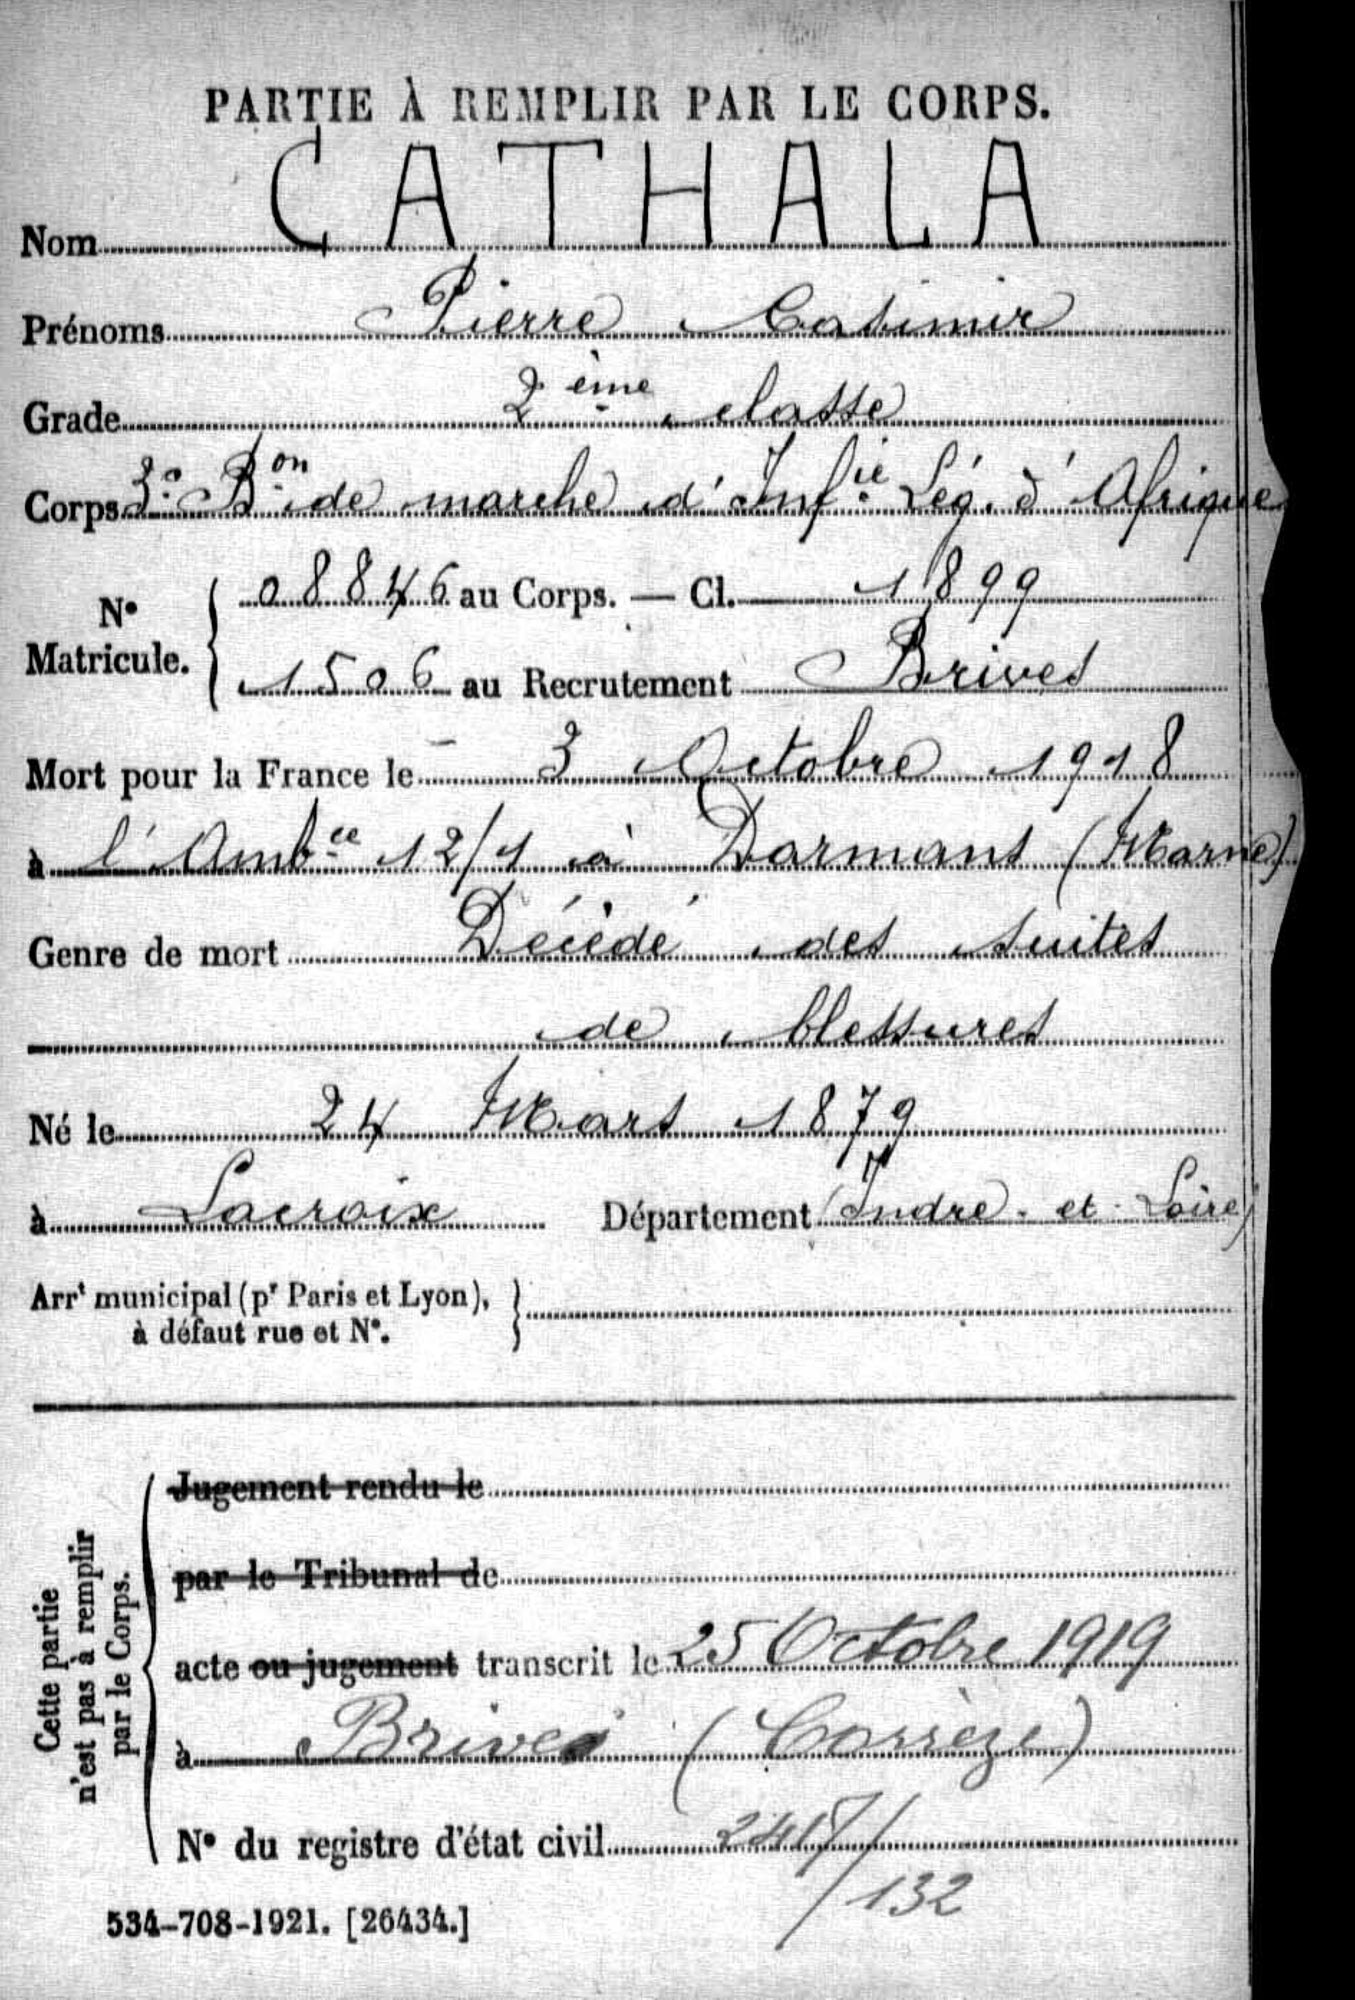 PARTIE À REMPLIR PAR LE CORPS.
Nom CATHALA
Prénoms Pierre Casimir
Grade 2ème classe
Corps 3e Bon de marche d'Infie Lég. d'Afrique
N° Matricule. 08846 au Corps. — Cl. 1899
1506 au Recrutement Brives
Mort pour la France le 3 Octobre 1918
à l'Ambce 12/1 à Dormans (Marne)
Genre de mort Décédé des suites
de blessures
Né le 24 Mars 1879
à Lacroix Département (Indre-et-Loire)
Arrt municipal (pr Paris et Lyon),
à défaut rue et N°.
Cette partie
n'est pas à remplir
par le Corps.
Jugement rendu le
par le Tribunal de
acte ou jugement transcrit le 25 Octobre 1919
à Brives (Corrèze)
N° du registre d'état civil
132
534-708-1921. [26434.]